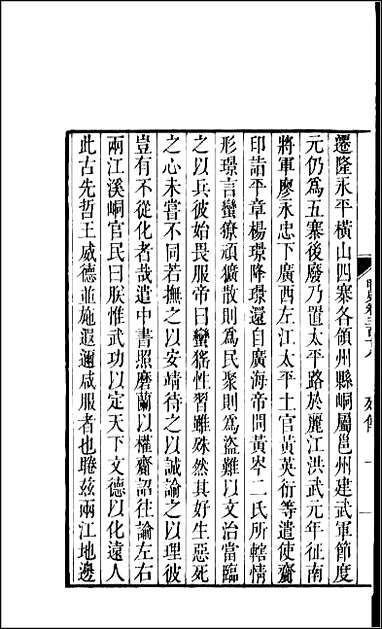 遷隆永平橫山四寨各領州縣峒屬邕州建武軍節度
元仍爲五寨後廢乃置太平路於麗江洪武元年征南
將軍廖永忠下廣西左江太平土官黃英衍等遣使齎
印詣平章楊璟降璟還自廣海帝問黃岑二氏所轄情
形璟言蠻獠頑獷散則爲民聚則爲盜難以文治當臨
之以兵彼始畏服帝曰蠻猺性習雖殊然其好生惡死
之心未嘗不同若撫之以安靖待之以誠諭之以理彼
豈有不從化者哉遣中書照磨蘭以權齎詔往諭左右
兩江溪峒官民曰朕惟武功以定天下文德以化遠人
此古先哲王威德並施遐邇咸服者也睠茲兩江地邊